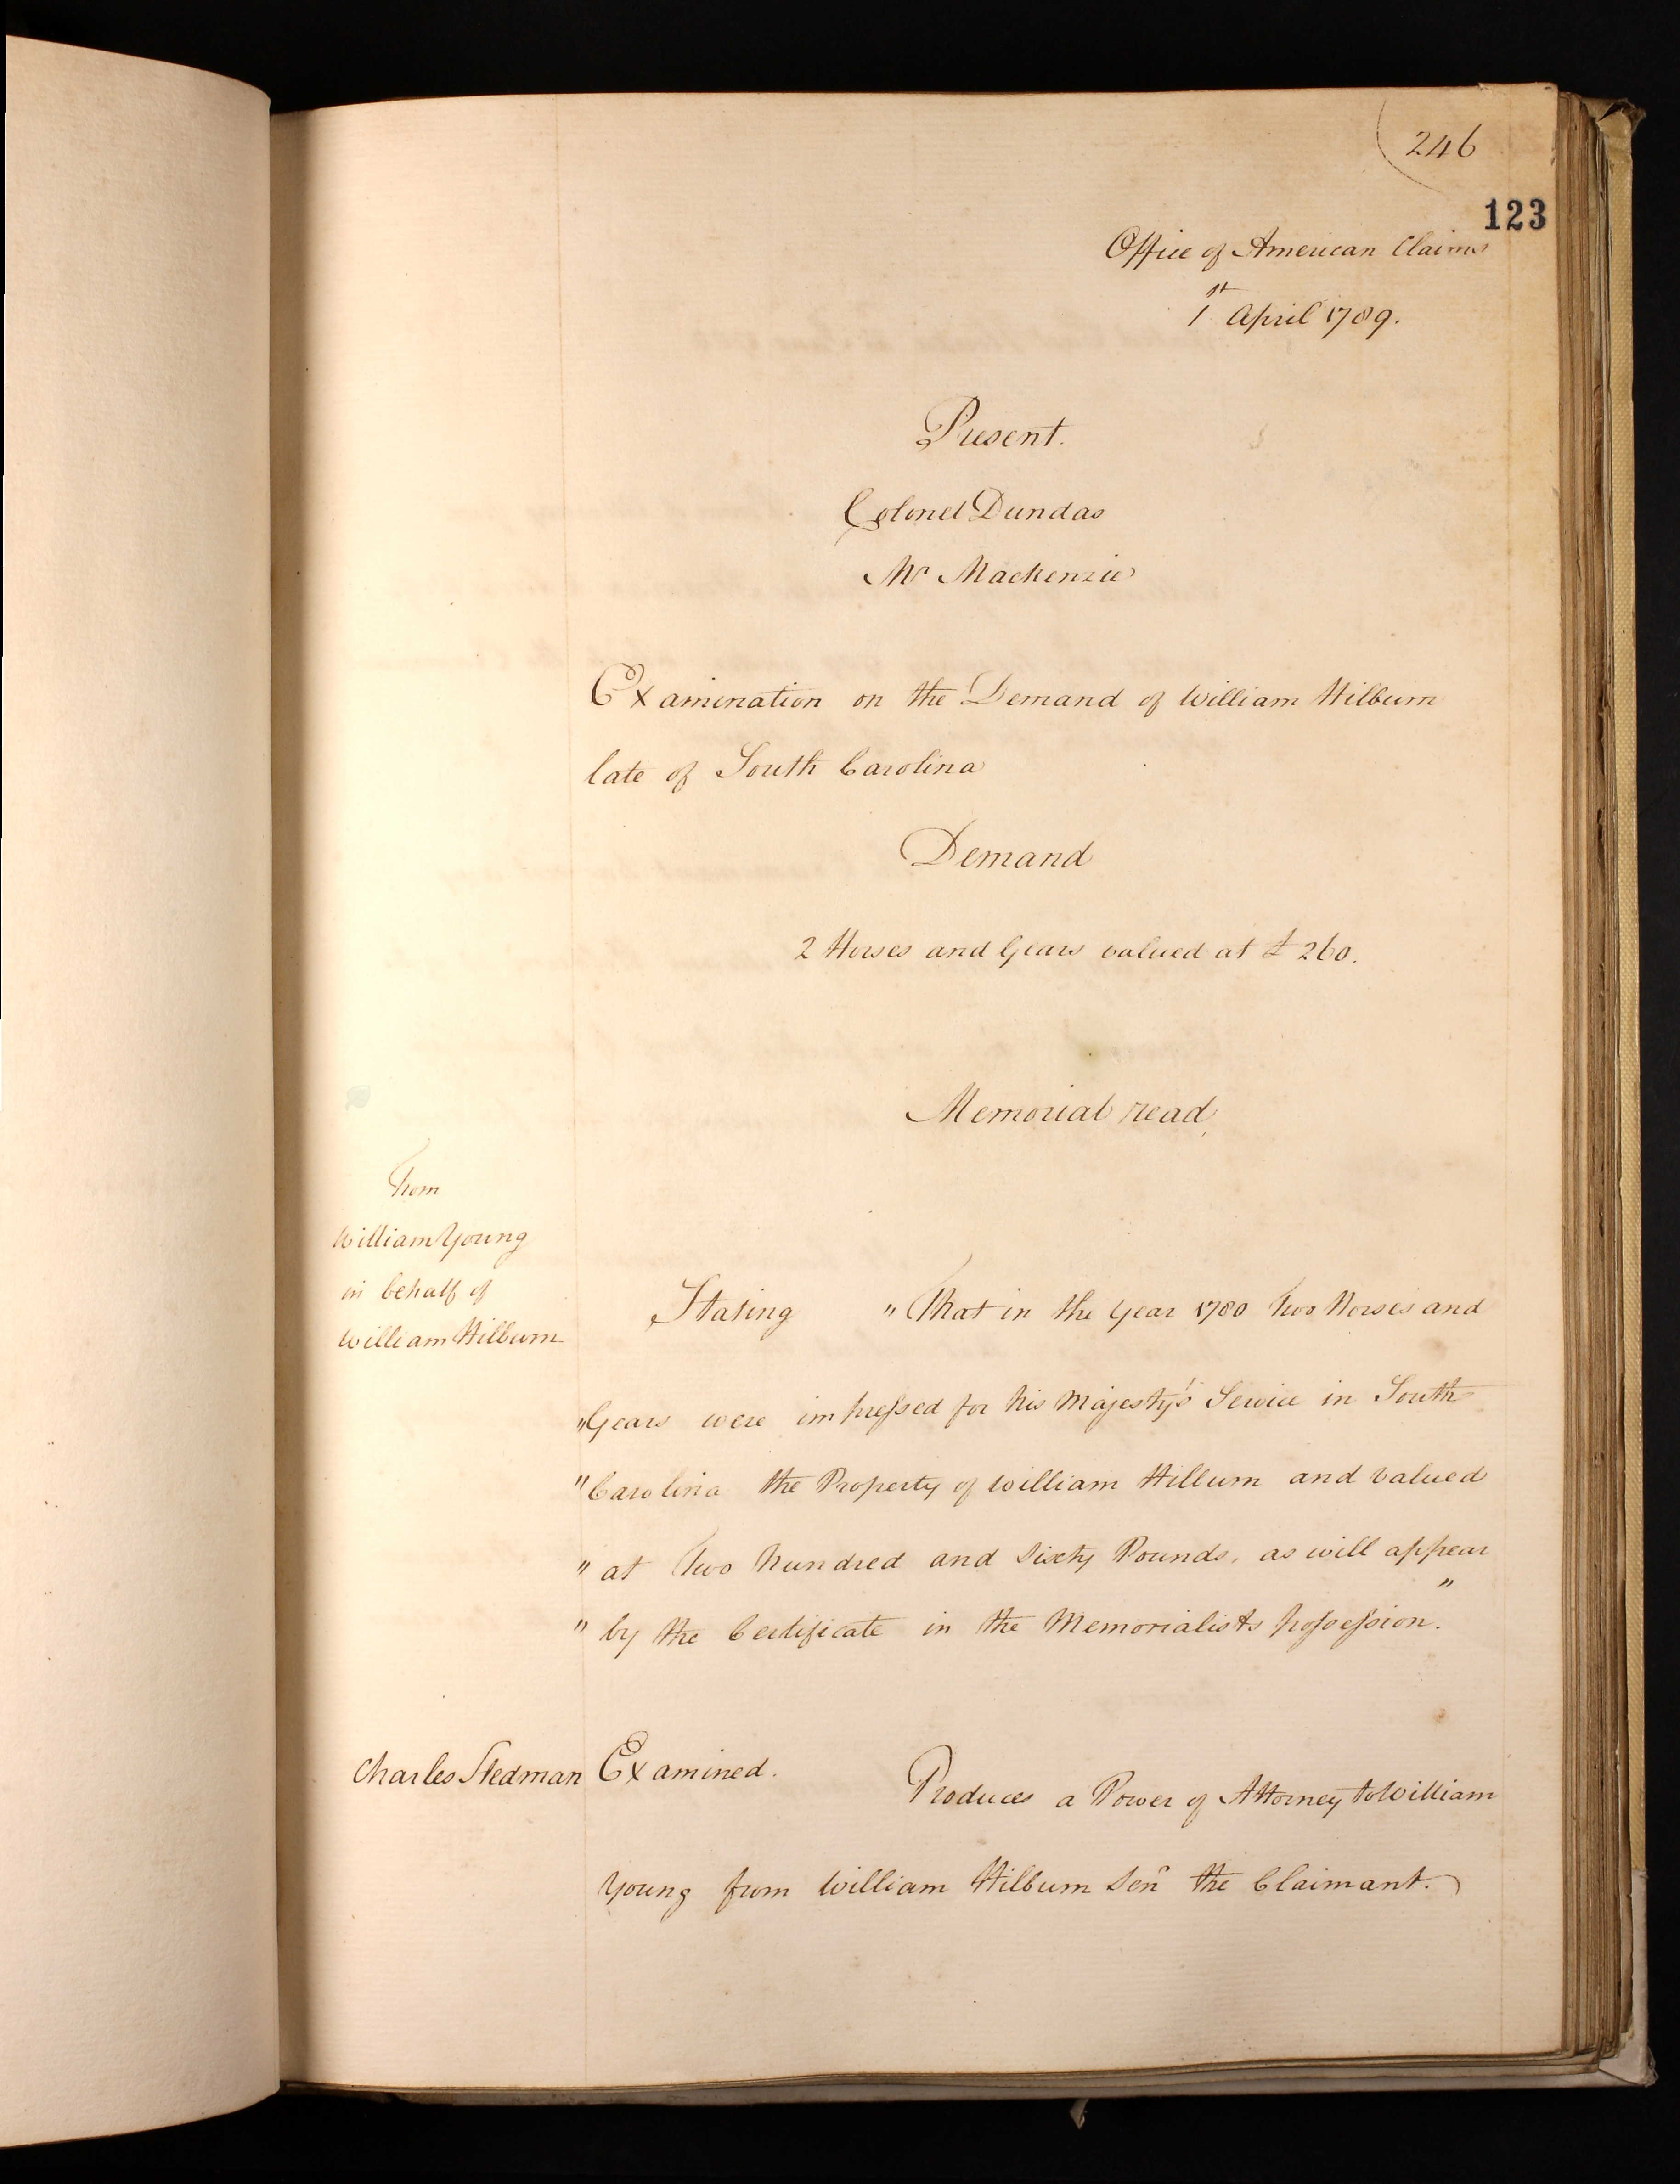 246
123
Office of American Claims
1st April 1789.
Present.
Colonel Dundas
Mr Mackenzie
Examination on the Demand of William Hilburn
late of South Carolina
Demand
2 Horses and Gears valued at £ 260.
Memorial read,
From
William Young
in behalf of
William Hilburn
Stating " That in the Year 1780 Two Horses and
" Gears were impressed for his Majesty's Service in South
" Carolina the Property of William Hilburn and valued
" at Two hundred and Sixty Pounds, as will appear
" by the Certificate in the Memorialists possession. "
Charles Stedman Examined. Produces a Power of Attorney to William
Young from William Hilburn Senr the Claimant.